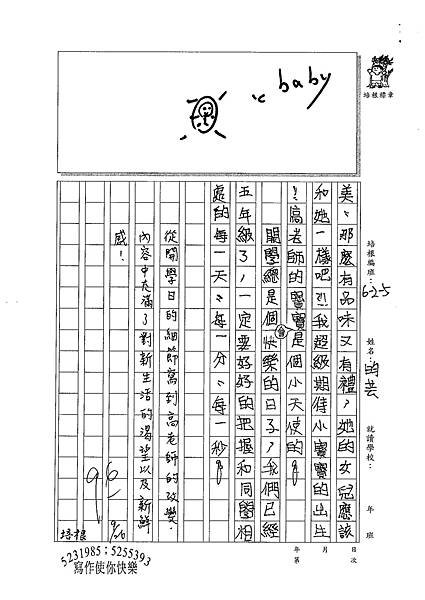 baby
培根標章
培根編班：625
姓名：昀芸
就讀學校：
年 班
美，那麼有品味又有禮，她的女兒應該
和她一樣吧！！我超級期待小寶寶的出生
！高老師的寶寶會是個小天使的。
開學總是個快樂的日子，我們已經
五年級了，一定要好好的把握和同學相
處的每一天，每一分，每一秒。
從開學日的細節寫到高老師的改變，
內容中充滿了對新生活的渴望以及新鮮
感！
96
9/26
培根
年 月 日
第 次
5231985；5255393
寫作使你快樂